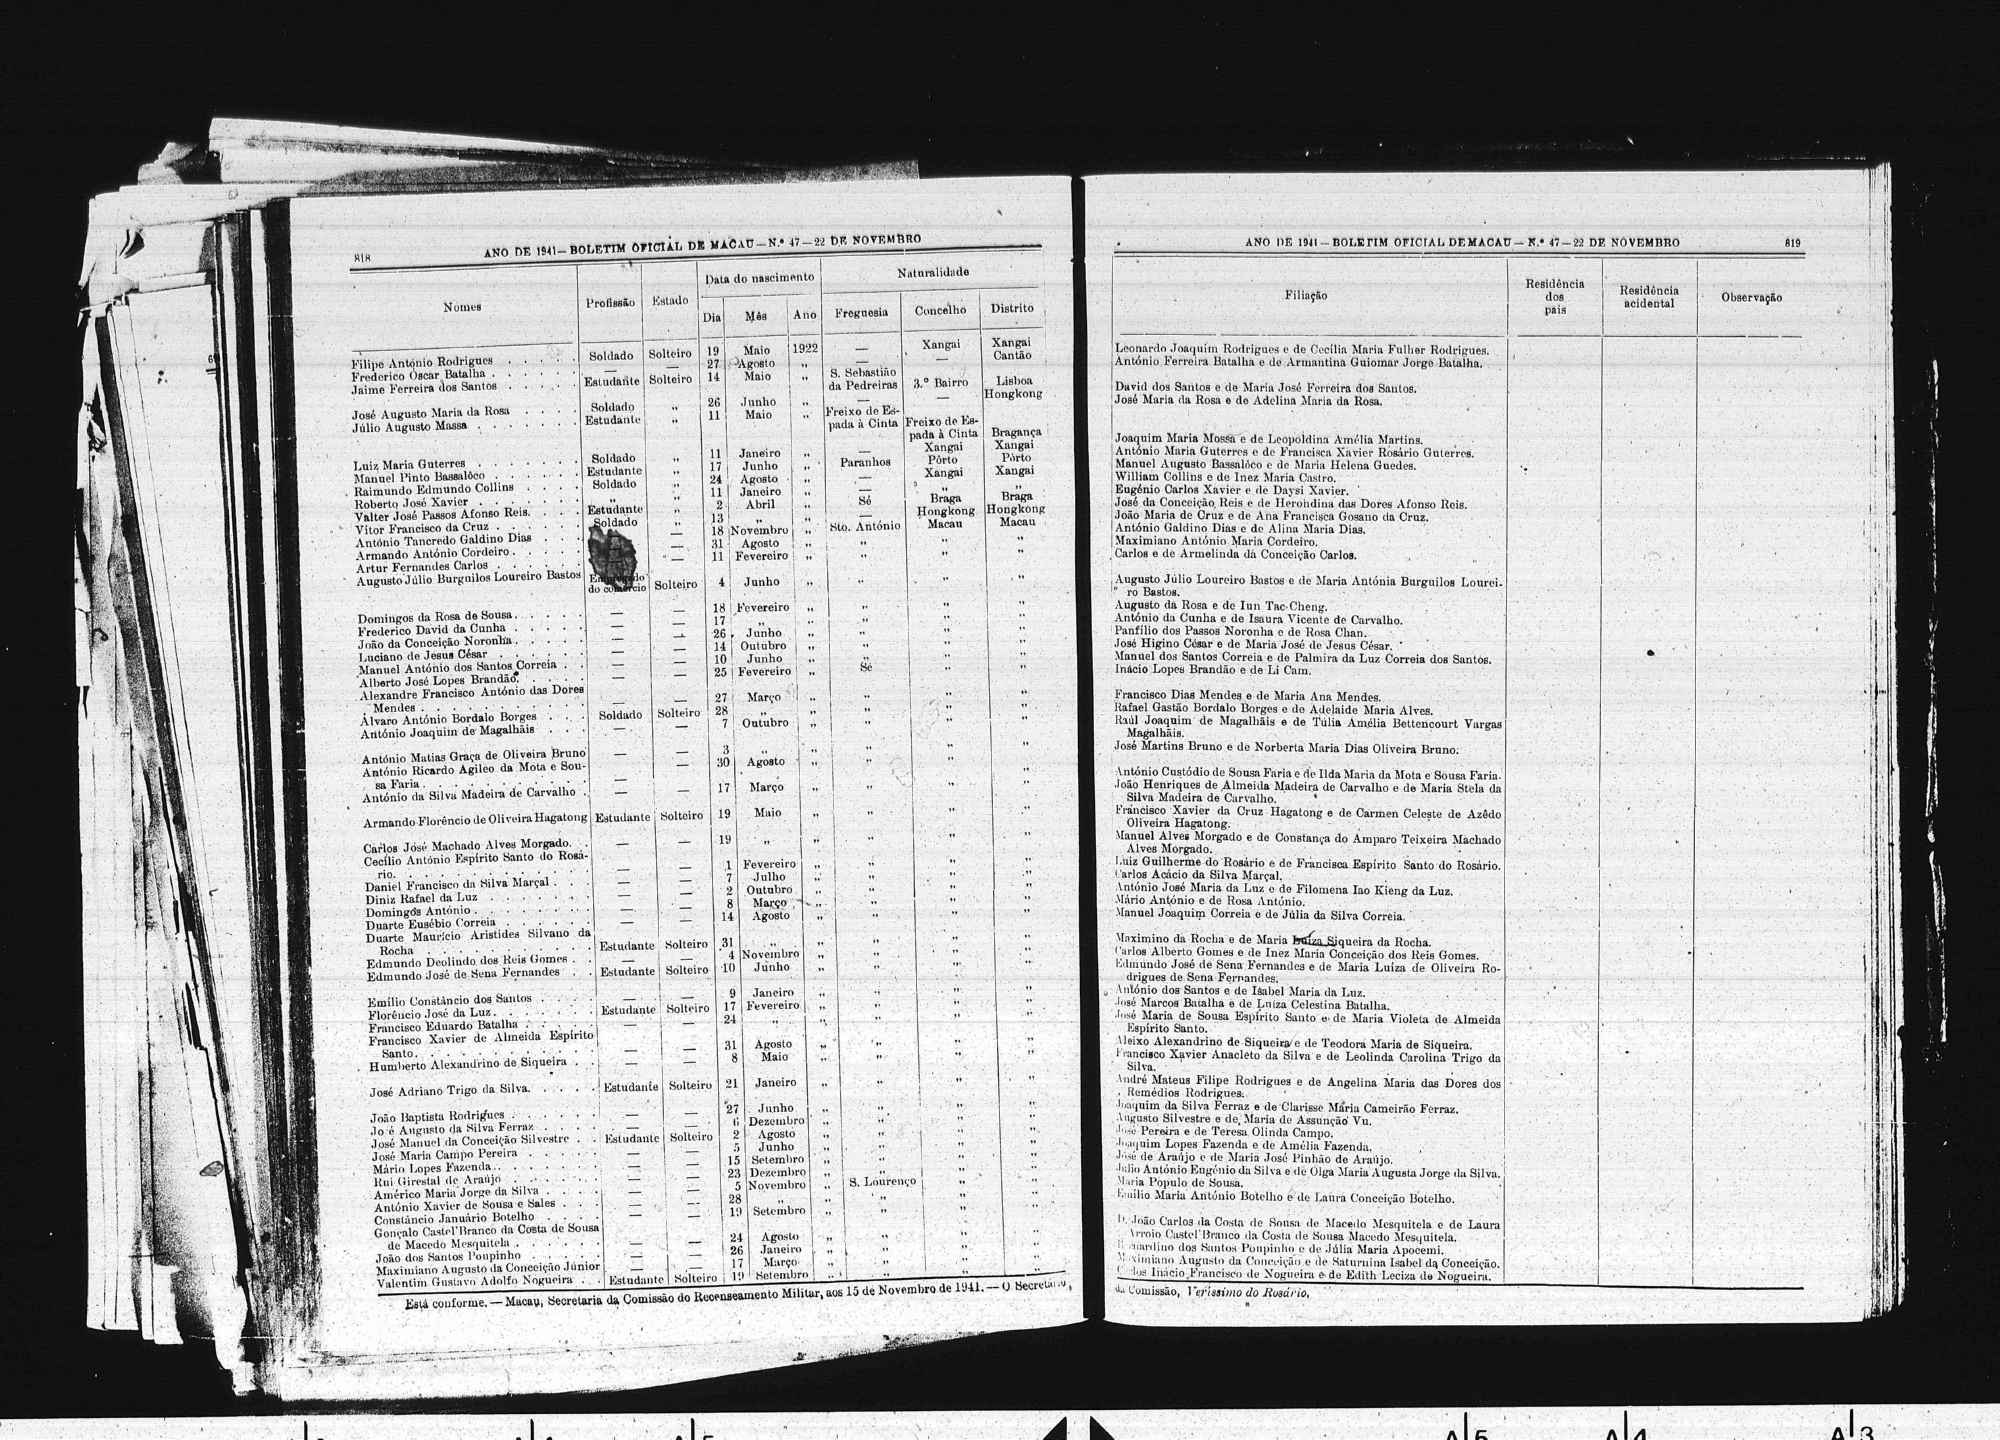 818
ANO DE 1941—BOLETIM OFICIAL DE MACAU—N.º 47—22 DE NOVEMBRO
Nomes Profissão Estado Data do nascimento Naturalidade
Dia Mês Ano Freguesia Concelho Distrito
Filipe António Rodrigues . . . . . Soldado Solteiro 19 Maio 1922 — Xangai Xangai
Frederico Óscar Batalha . . . . . — — 27 Agosto „ — — Cantão
Jaime Ferreira dos Santos . . . . . Estudante Solteiro 14 Maio „ S. Sebastião da Pedreiras 3.º Bairro Lisboa
José Augusto Maria da Rosa . . . . Soldado „ 26 Junho „ — — Hongkong
Júlio Augusto Massa . . . . . . . Estudante „ 11 Maio „ Freixo de Espada à Cinta Freixo de Espada à Cinta Bragança
Luiz Maria Guterres . . . . . . . Soldado „ 11 Janeiro „ — Xangai Xangai
Manuel Pinto Bassalôco . . . . . . Estudante „ 17 Junho „ Paranhos Pôrto Pôrto
Raimundo Edmundo Collins . . . . Soldado „ 24 Agosto „ — Xangai Xangai
Roberto José Xavier . . . . . . „ „ 11 Janeiro „ — „ „
Valter José Passos Afonso Reis. . . . Estudante „ 2 Abril „ Sé Braga Braga
Vítor Francisco da Cruz . . . . . . Soldado „ 13 „ „ — Hongkong Hongkong
António Tancredo Galdino Dias . . . — 18 Novembro „ Sto. António Macau Macau
Armando António Cordeiro . . . . . — 31 Agosto „ „ „ „
Artur Fernandes Carlos . . . . . . — 11 Fevereiro „ „ „ „
Augusto Júlio Burguilos Loureiro Bastos Empregado do comércio Solteiro 4 Junho „ „ „ „
Domingos da Rosa de Sousa. . . . . — — 18 Fevereiro „ „ „ „
Frederico David da Cunha . . . . . — — 17 „ „ „ „ „
João da Conceição Noronha . . . . . — — 26 Junho „ „ „ „
Luciano de Jesus César . . . . . . — — 14 Outubro „ „ „ „
Manuel António dos Santos Correia . . — — 10 Junho „ „ „ „
Alberto José Lopes Brandão. . . . . — — 25 Fevereiro „ Sé „ „
Alexandre Francisco António das Dores
Mendes . . . . . . . . . . — — 27 Março „ „ „ „
Álvaro António Bordalo Borges . . . Soldado Solteiro 28 „ „ „ „ „
António Joaquim de Magalhãis . . . — — 7 Outubro „ „ „ „
António Matias Graça de Oliveira Bruno — — 3 „ „ „ „ „
António Ricardo Agileo da Mota e Sou-
sa Faria . . . . . . . . . . — — 30 Agosto „ „ „ „
António da Silva Madeira de Carvalho . — — 17 Março „ „ „ „
Armando Florêncio de Oliveira Hagatong Estudante Solteiro 19 Maio „ „ „ „
Carlos José Machado Alves Morgado. . — — 19 „ „ „ „ „
Cecílio António Espírito Santo do Rosá-
rio. . . . . . . . . . . — — 1 Fevereiro „ „ „ „
Daniel Francisco da Silva Marçal . . . — — 7 Julho „ „ „ „
Diniz Rafael da Luz . . . . . . . — — 2 Outubro „ „ „ „
Domingos António . . . . . . . . — — 8 Março „ „ „ „
Duarte Eusébio Correia . . . . . . — — 14 Agosto „ „ „ „
Duarte Maurício Aristides Silvano da
Rocha . . . . . . . . . . Estudante Solteiro 31 „ „ „ „ „
Edmundo Deolindo dos Reis Gomes . . — — 4 Novembro „ „ „ „
Edmundo José de Sena Fernandes . . Estudante Solteiro 10 Junho „ „ „ „
Emílio Constâncio dos Santos . . . . — — 9 Janeiro „ „ „ „
Florêncio José da Luz . . . . . . Estudante Solteiro 17 Fevereiro „ „ „ „
Francisco Eduardo Batalha . . . . . — — 24 „ „ „ „ „
Francisco Xavier de Almeida Espírito
Santo. . . . . . . . . . . — — 31 Agosto „ „ „ „
Humberto Alexandrino de Siqueira . . — — 8 Maio „ „ „ „
José Adriano Trigo da Silva. . . . . Estudante Solteiro 21 Janeiro „ „ „ „
João Baptista Rodrigues . . . . . . — — 27 Junho „ „ „ „
José Augusto da Silva Ferraz . . . . — — 6 Dezembro „ „ „ „
José Manuel da Conceição Silvestre . . Estudante Solteiro 2 Agosto „ „ „ „
José Maria Campo Pereira . . . . . — — 5 Junho „ „ „ „
Mário Lopes Fazenda . . . . . . . — — 15 Setembro „ „ „ „
Rui Girestal de Araújo . . . . . . — — 23 Dezembro „ „ „ „
Américo Maria Jorge da Silva . . . . — — 5 Novembro „ S. Lourenço „ „
António Xavier de Sousa e Sales . . . — — 28 „ „ „ „ „
Constâncio Januário Botelho . . . . — — 19 Setembro „ „ „ „
Gonçalo Castel'Branco da Costa de Sousa
de Macedo Mesquitela . . . . . — — 24 Agosto „ „ „ „
João dos Santos Poupinho . . . . . — — 26 Janeiro „ „ „ „
Maximiano Augusto da Conceição Júnior — — 17 Março „ „ „ „
Valentim Gustavo Adolfo Nogueira . . Estudante Solteiro 19 Setembro „ „ „ „
Está conforme. — Macau, Secretaria da Comissão do Recenseamento Militar, aos 15 de Novembro de 1941. — O Secretário,
ANO DE 1941—BOLETIM OFICIAL DE MACAU—N.º 47—22 DE NOVEMBRO
819
Filiação Residência dos pais Residência acidental Observação
Leonardo Joaquim Rodrigues e de Cecília Maria Fulher Rodrigues.
António Ferreira Batalha e de Armantina Guiomar Jorge Batalha.
David dos Santos e de Maria José Ferreira dos Santos.
José Maria da Rosa e de Adelina Maria da Rosa.
Joaquim Maria Mossa e de Leopoldina Amélia Martins.
António Maria Guterres e de Francisca Xavier Rosário Guterres.
Manuel Augusto Bassalôco e de Maria Helena Guedes.
William Collins e de Inez Maria Castro.
Eugénio Carlos Xavier e de Daysi Xavier.
José da Conceição Reis e de Herondina das Dores Afonso Reis.
João Maria de Cruz e de Ana Francisca Gosano da Cruz.
António Galdino Dias e de Alina Maria Dias.
Maximiano António Maria Cordeiro.
Carlos e de Armelinda da Conceição Carlos.
Augusto Júlio Loureiro Bastos e de Maria Antónia Burguilos Lourei-
ro Bastos.
Augusto da Rosa e de Iun Tac-Cheng.
António da Cunha e de Isaura Vicente de Carvalho.
Panfílio dos Passos Noronha e de Rosa Chan.
José Higino César e de Maria José de Jesus César.
Manuel dos Santos Correia e de Palmira da Luz Correia dos Santos.
Inácio Lopes Brandão e de Li Cam.
Francisco Dias Mendes e de Maria Ana Mendes.
Rafael Gastão Bordalo Borges e de Adelaide Maria Alves.
Raúl Joaquim de Magalhãis e de Túlia Amélia Bettencourt Vargas
Magalhãis.
José Martins Bruno e de Norberta Maria Dias Oliveira Bruno.
António Custódio de Sousa Faria e de Ilda Maria da Mota e Sousa Faria.
João Henriques de Almeida Madeira de Carvalho e de Maria Stela da
Silva Madeira de Carvalho.
Francisco Xavier da Cruz Hagatong e de Carmen Celeste de Azêdo
Oliveira Hagatong.
Manuel Alves Morgado e de Constança do Amparo Teixeira Machado
Alves Morgado.
Luiz Guilherme do Rosário e de Francisca Espírito Santo do Rosário.
Carlos Acácio da Silva Marçal.
António José Maria da Luz e de Filomena Iao Kieng da Luz.
Mário António e de Rosa António.
Manuel Joaquim Correia e de Júlia da Silva Correia.
Maximino da Rocha e de Maria Luíza Siqueira da Rocha.
Carlos Alberto Gomes e de Inez Maria Conceição dos Reis Gomes.
Edmundo José de Sena Fernandes e de Maria Luíza de Oliveira Ro-
drigues de Sena Fernandes.
António dos Santos e de Isabel Maria da Luz.
José Marcos Batalha e de Luíza Celestina Batalha.
José Maria de Sousa Espírito Santo e de Maria Violeta de Almeida
Espírito Santo.
Aleixo Alexandrino de Siqueira e de Teodora Maria de Siqueira.
Francisco Xavier Anacleto da Silva e de Leolinda Carolina Trigo da
Silva.
André Mateus Filipe Rodrigues e de Angelina Maria das Dores dos
Remédios Rodrigues.
Joaquim da Silva Ferraz e de Clarisse Maria Cameirão Ferraz.
Augusto Silvestre e de Maria de Assunção Vu.
José Pereira e de Teresa Olinda Campo.
Joaquim Lopes Fazenda e de Amélia Fazenda.
José de Araújo e de Maria José Pinhão de Araújo.
Júlio António Eugénio da Silva e de Olga Maria Augusta Jorge da Silva.
Maria Populo de Sousa.
Emílio Maria António Botelho e de Laura Conceição Botelho.
D. João Carlos da Costa de Sousa de Macedo Mesquitela e de Laura
Arroio Castel'Branco da Costa de Sousa Macedo Mesquitela.
Bernardino dos Santos Poupinho e de Júlia Maria Apocemi.
Maximiano Augusto da Conceição e de Saturnina Isabel da Conceição.
Carlos Inácio Francisco de Nogueira e de Edith Leciza de Nogueira.
da Comissão, Veríssimo do Rosário.